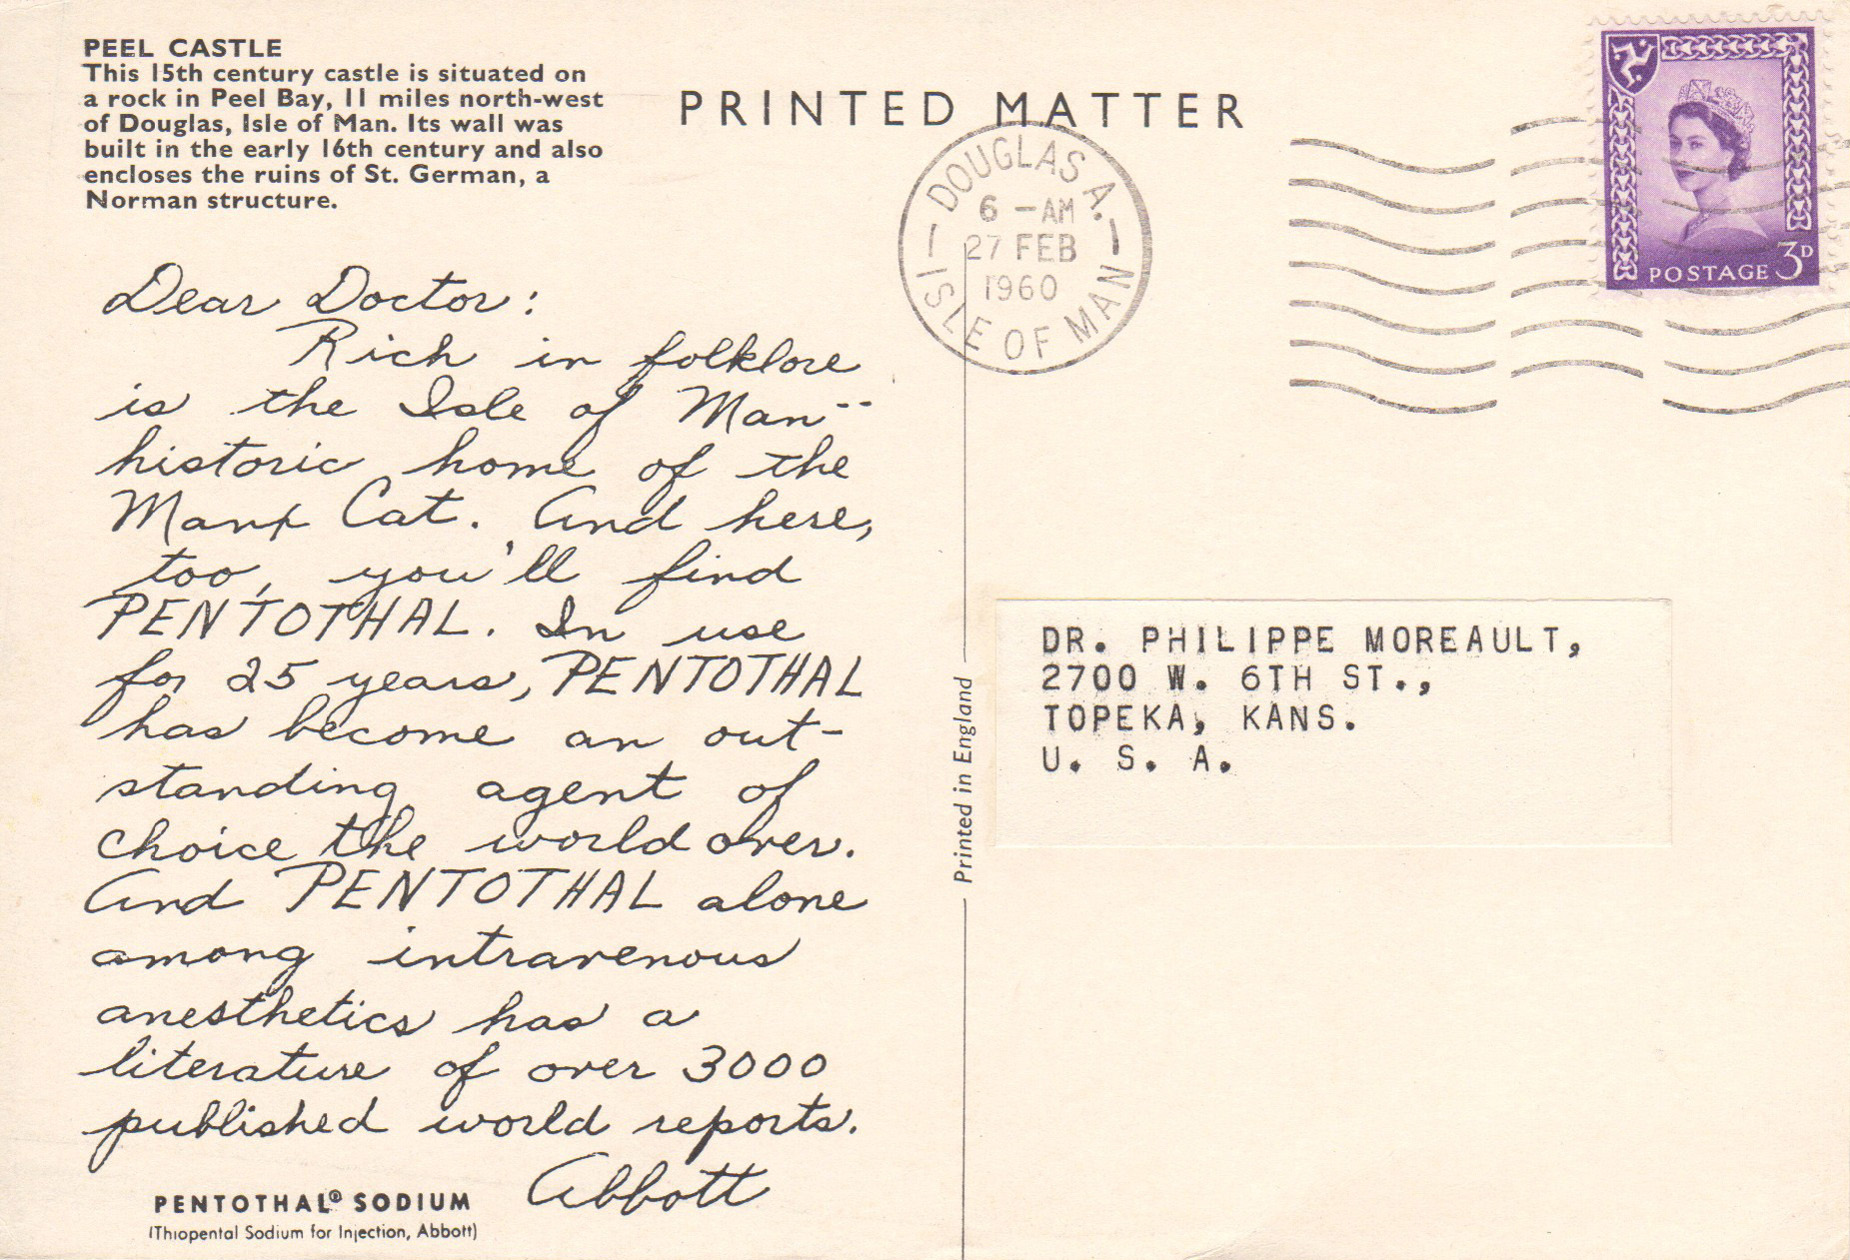 PEEL CASTLE
This 15th century castle is situated on
a rock in Peel Bay, 11 miles north-west
of Douglas, Isle of Man. Its wall was
built in the early 16th century and also
encloses the ruins of St. German, a
Norman structure.
PRINTED MATTER
DOUGLAS A.
6 -AM
27 FEB
1960
ISLE OF MAN
POSTAGE 3D
Dear Doctor:
Rich in folklore
is the Isle of Man--
historic home of the
Manx Cat. And here,
too, you'll find
PENTOTHAL. In use
for 25 years, PENTOTHAL
has become an out-
standing agent of
choice the world over.
And PENTOTHAL alone
among intravenous
anesthetics has a
literature of over 3000
published world reports.
Abbott
PENTOTHAL® SODIUM
(Thiopental Sodium for Injection, Abbott)
Printed in England
DR. PHILIPPE MOREAULT,
2700 W. 6TH ST.,
TOPEKA, KANS.
U. S. A.